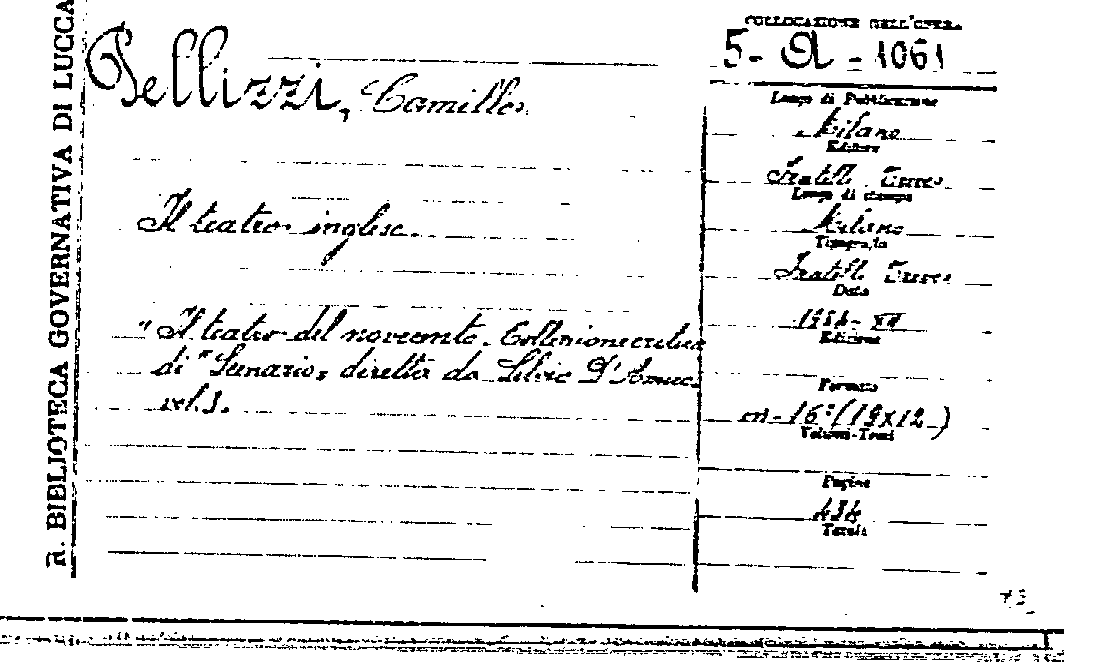 R. BIBLIOTECA GOVERNATIVA DI LUCCA
Pellizzi, Camillo.
Il teatro inglese.
" Il teatro del novecento. Collezione critica
di "Scenario" diretta da Silvio D'Amico
vol. 3.
COLLOCAZIONE DELL'OPERA
5 - A - 1061
Luogo di Pubblicazione
Milano
Editore
Fratelli Treves
Luogo di stampa
Milano
Tipografia
Fratelli Treves
Data
1934 - XII
Edizione
Formato
in - 16° (19x12)
Volumi-Tomi
Pagine
434
Tavole